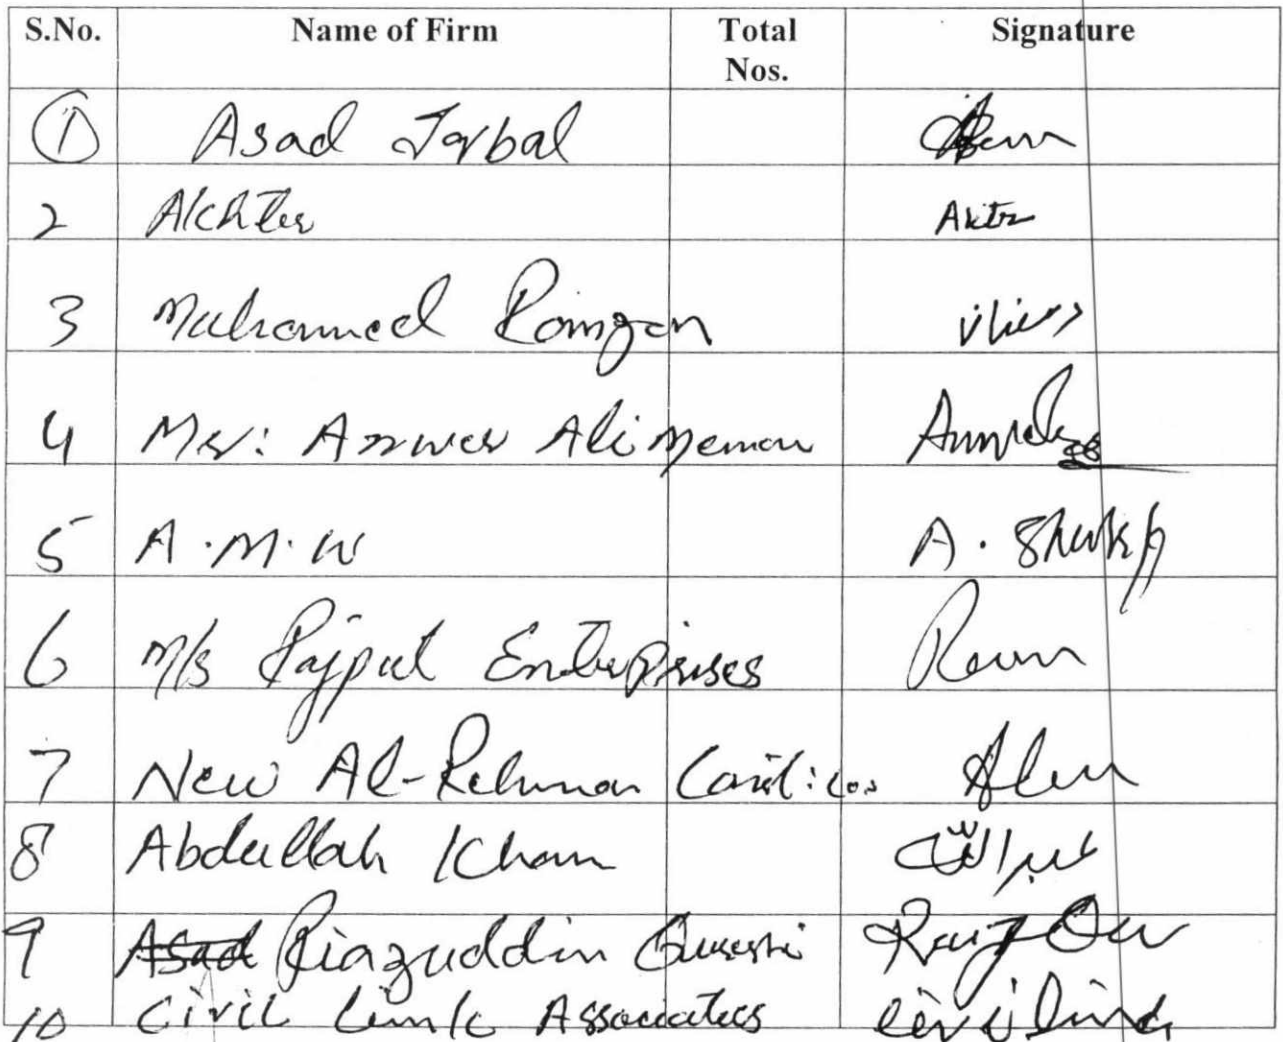 S.No. Name of Firm Total Nos. Signature
1 Asad Iqbal
2 Akhter Akhtr
3 Muhammad Ramzan
4 Mr: Anwer Ali Memon
5 A.M.W A. Shaikh
6 M/s Rajput Enterprises
7 New Al-Rehman Const: Co:
8 Abdullah Khan عبداللہ
9 Asad Riazuddin Qureshi
10 Civil Link Associates